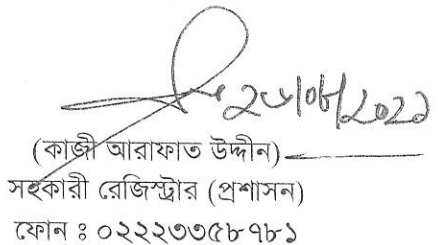 ২৬/০৮/২০২১
(কাজী আরাফাত উদ্দীন)
সহকারী রেজিস্ট্রার (প্রশাসন)
ফোন ঃ ০২২২৩৩৫৮৭৮১